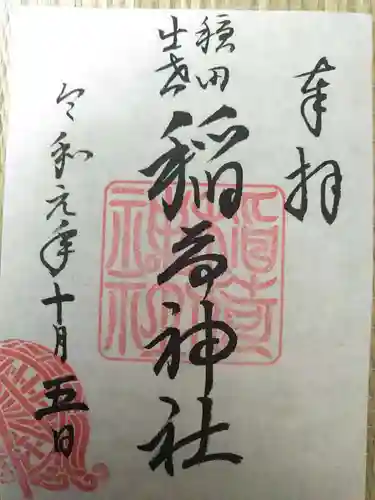 奉拝
穏田
出世
稲荷神社
令和元年十月五日